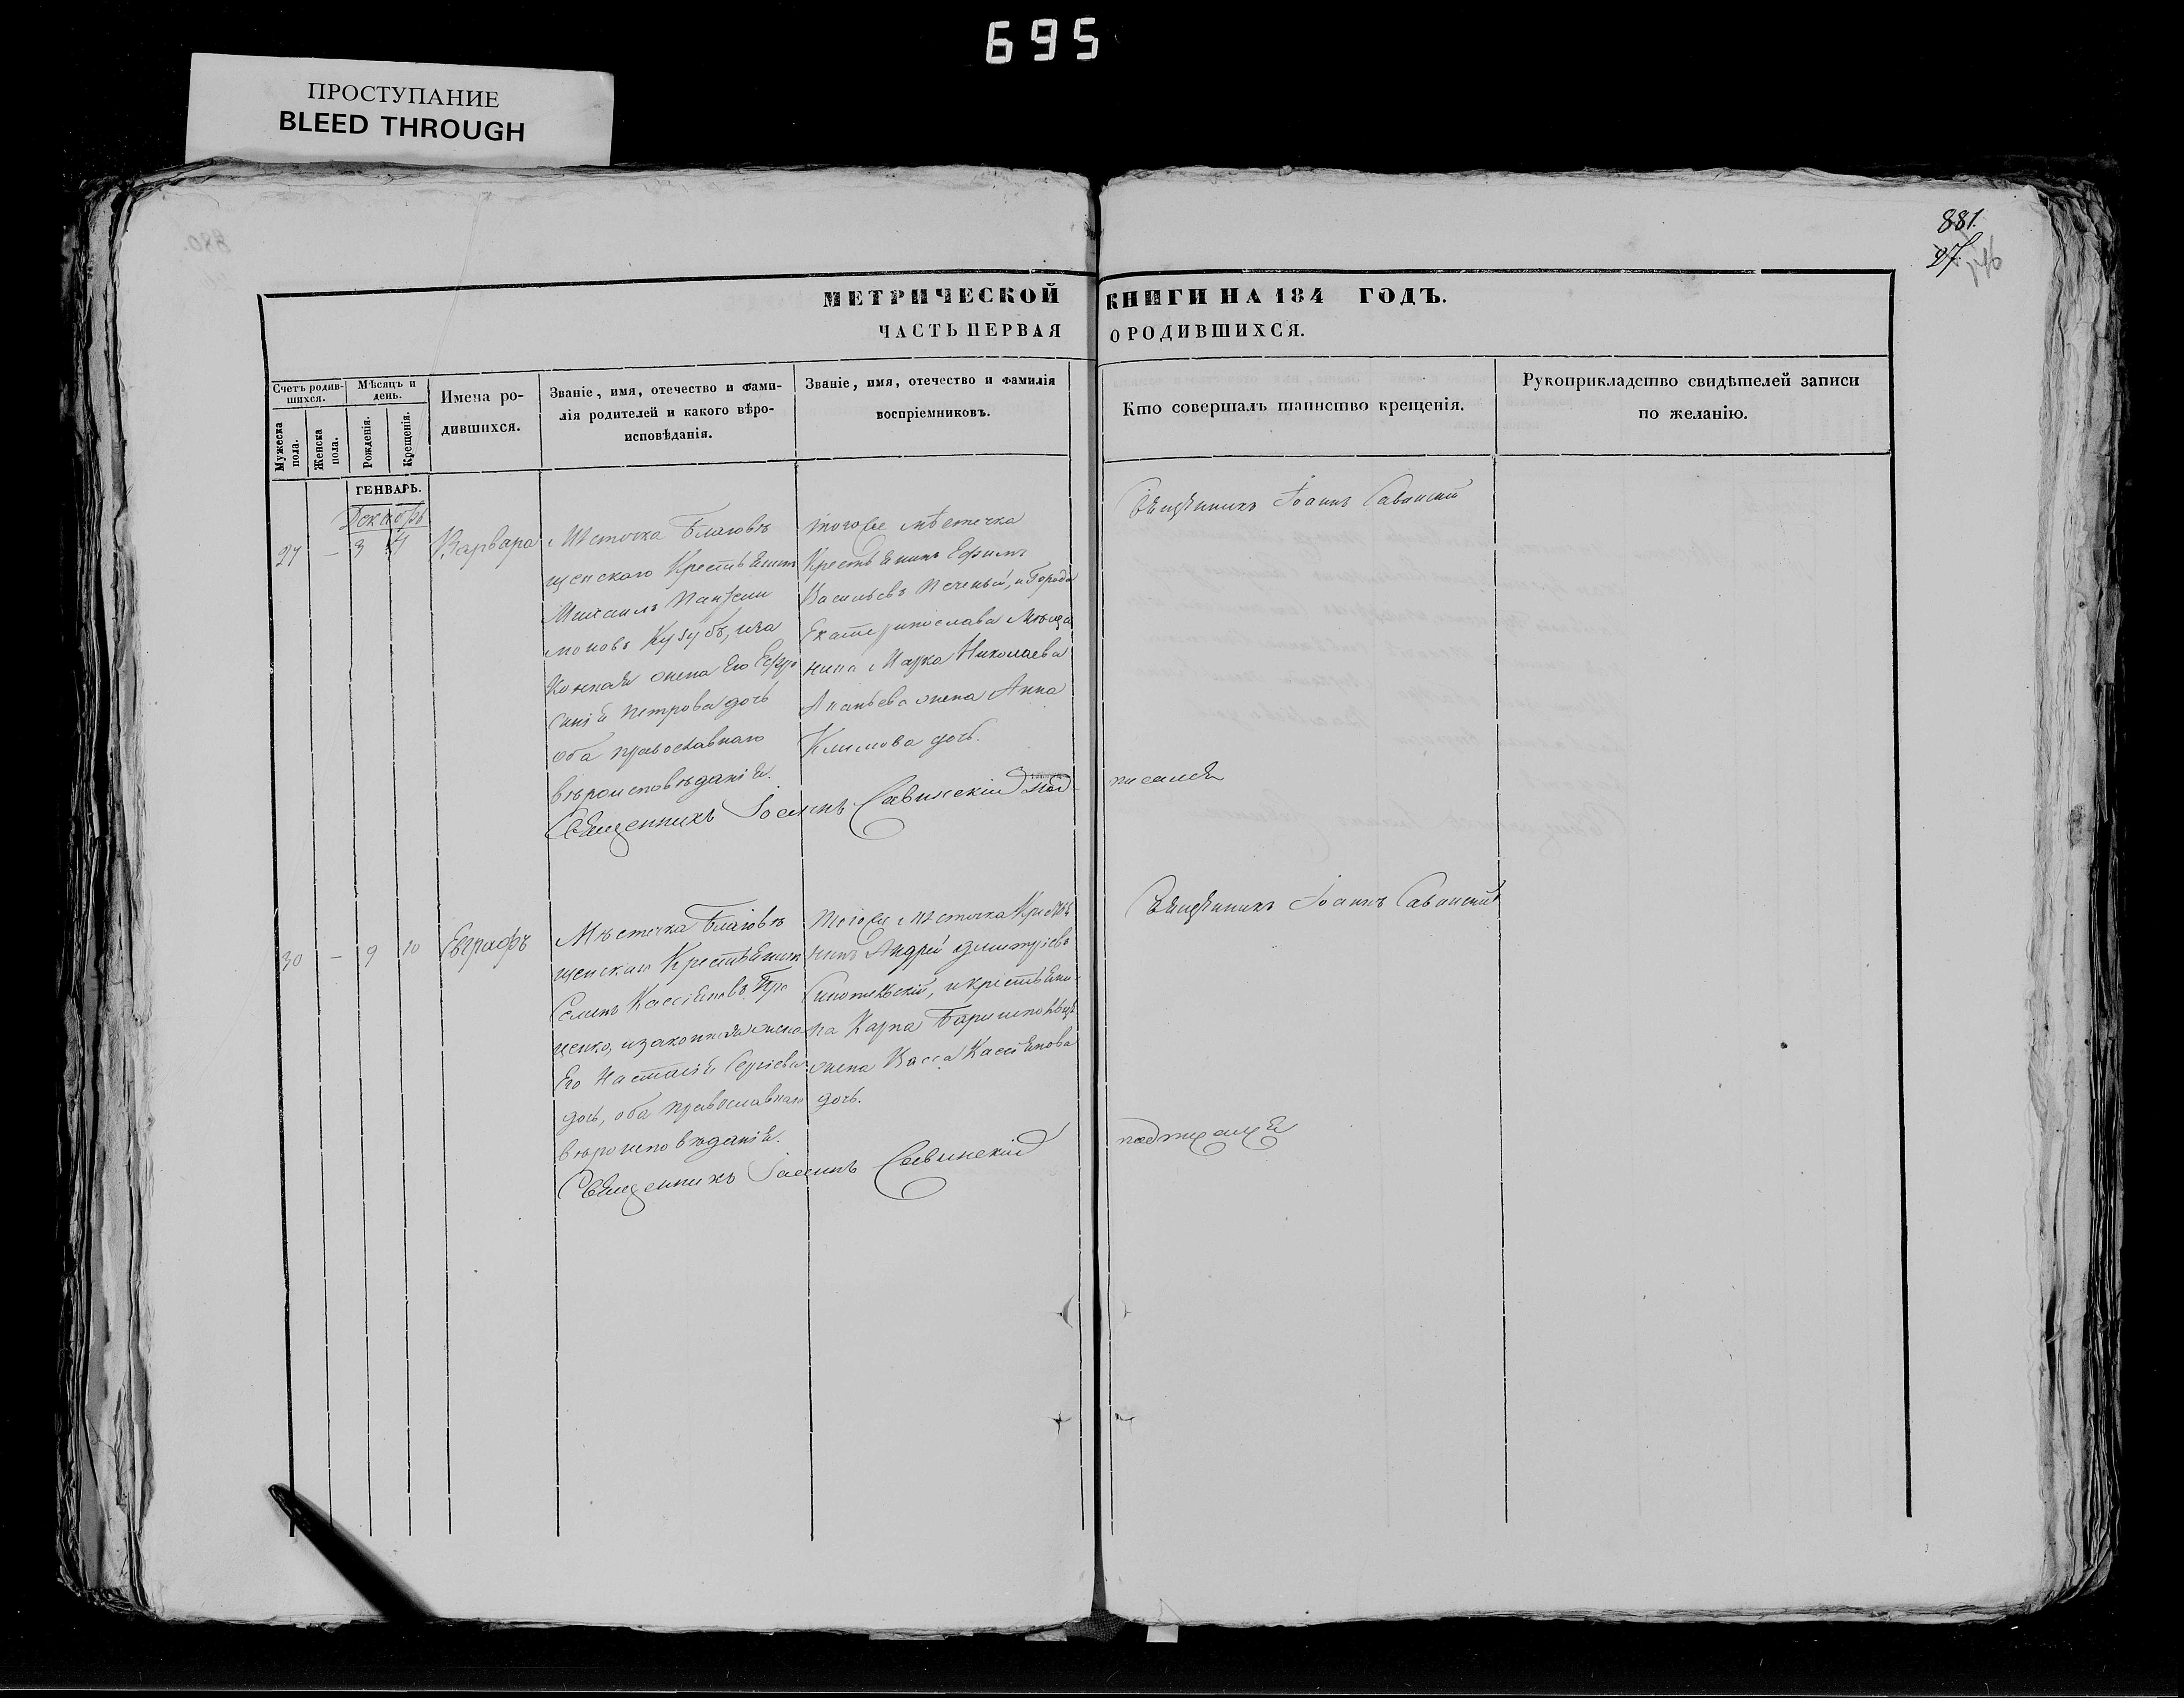 695
ПРОСТУПАНИЕ
BLEED THROUGH
881.
27.
МЕТРИЧЕСКОЙ КНИГИ НА 184 ГОДЪ.
ЧАСТЬ ПЕРВАЯ О РОДИВШИХСЯ.
Счетъ родив-
шихся.
Мужеска
пола.
Женска
пола.
Мѣсяцъ и
день.
Рожденія.
Крещенія.
Имена ро-
дившихся.
Званіе, имя, отечество и фами-
лія родителей и какого вѣро-
исповѣданія.
Званіе, имя, отечество и фамилія
воспріемниковъ.
Кто совершалъ таинство крещенія.
Рукоприкладство свидѣтелей записи
по желанію.
ГЕНВАРЬ.
Декабрь
— 3 4
Варвара
Мѣстечка Благовѣ
щенскаго Крестьянинъ
Михаилъ Пантели
моновъ Кузубъ, и За
конная жена Его Евфро
синія Петрова дочь
оба православнаго
вѣроисповѣданія.
тогоже мѣстечка
Крестьянинъ Ефимъ
Васильевъ Печеный, и Города
Екатеринослава Мѣща
нина Марка Николаева
Ананьева жена Анна
Климова дочь.
Священникъ Іоаннъ Савинскій
Священникъ Іоаннъ Савинскій под
писался
30 — 9 10
Евграфъ
Мѣстечка Благовѣ
щенскаго Крестьянинъ
Семенъ Кассіяновъ Про
ценко, и законная жена
Его Настасія Сергіева
дочь, оба православнаго
вѣроисповѣданія.
Тогоже Мѣстечка Крестья
нинъ Андрей Дмитріевъ
и крестьяни-
на Карпа
жена Васса Кассіянова
дочь.
Священникъ Іоаннъ Савинскій
Священникъ Іоаннъ Савинскій
подписался